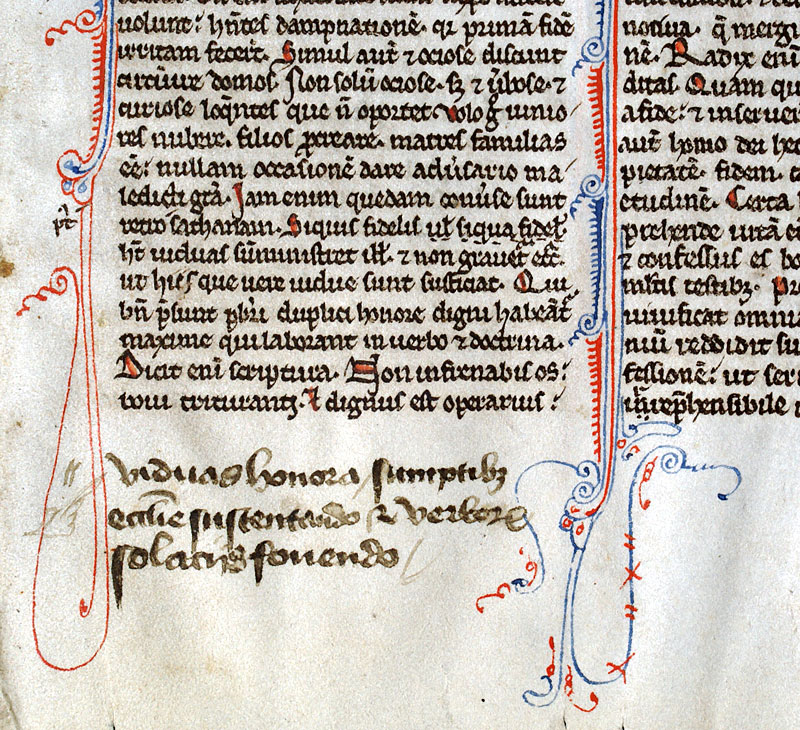 uolunt: hn̄tes dampnationē. qr primā fidē
irritam fecert̄. Simul aut̄ ⁊ ociose discunt
circuire domos. Non solū ociose. sꝫ ⁊ ūbose. ⁊
curiose loqn̄tes que n̄ oportet. Volo g iunio
res nubere. filios ꝓcreare. matres familias
eē: nullam occasionē dare adūsario ma
ledicti gr̄a. Jam enim quedam conūse sunt
retro sathanam. Siquis fidelis ul̄ siqua fidel̄.
ht̄ uiduas sūministret ill̄. ⁊ non grauet̄ ecc̄.
ut hiis que uere uidue sunt sufficiat. Qui
bn̄ p̄sunt p̄br̄i duplici honore digni habeāt᷑
maxime qui laborant in uerbo ⁊ doctrina.
Dicit eni᷑ scriptura. Non infrenabis os:
boui trituranti. Et dignus est operarius:
uiduas honora sumptibꝫ
ecclīe sustentando ⁊ verborꝝ
solaciis fouendo
notiua. q̄
nē. Radix eni᷑
ditas. Quam
a fide: ⁊ inseruer
aut̄ homo dei hec
pietatē. fidem.
etudinē. Certa
prehende uitā
⁊ confessus es bo
multis testibꝫ.
uiuificat omnia
niū reddidit su
fessionē: ut ser
irrep̄hensibile